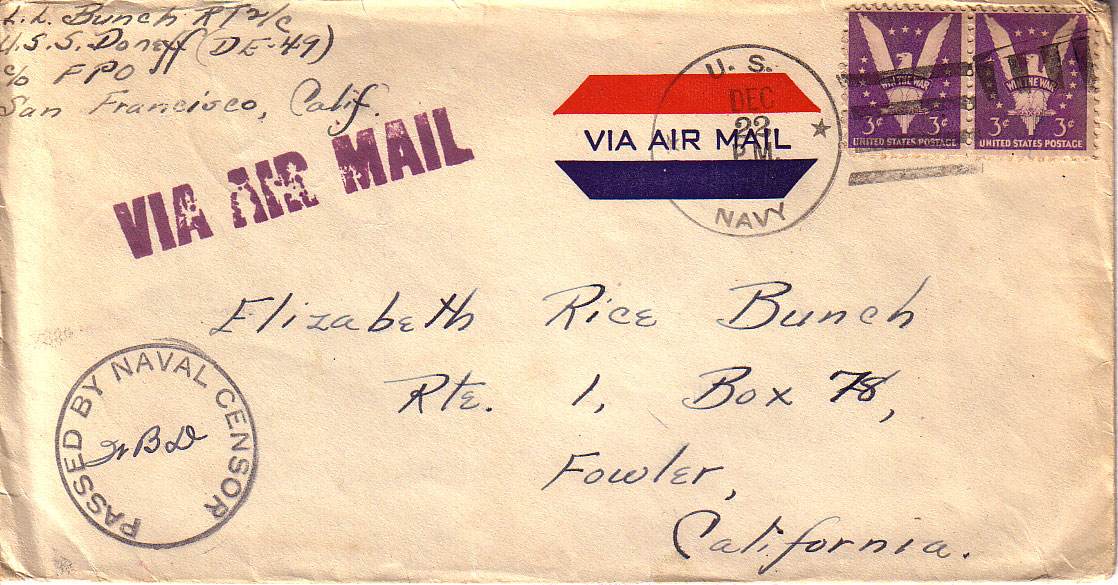 L.L. Bunch RT 2/c
U.S.S. Doneff (DE-49)
c/o FPO
San Francisco, Calif.
VIA AIR MAIL
VIA AIR MAIL
U. S.
DEC
22
P.M.
NAVY
WIN THE WAR
3¢ 3¢
UNITED STATES POSTAGE
WIN THE WAR
3¢ 3¢
UNITED STATES POSTAGE
Elizabeth Rice Bunch
Rte. 1, Box 78,
Fowler,
California.
PASSED BY NAVAL CENSOR